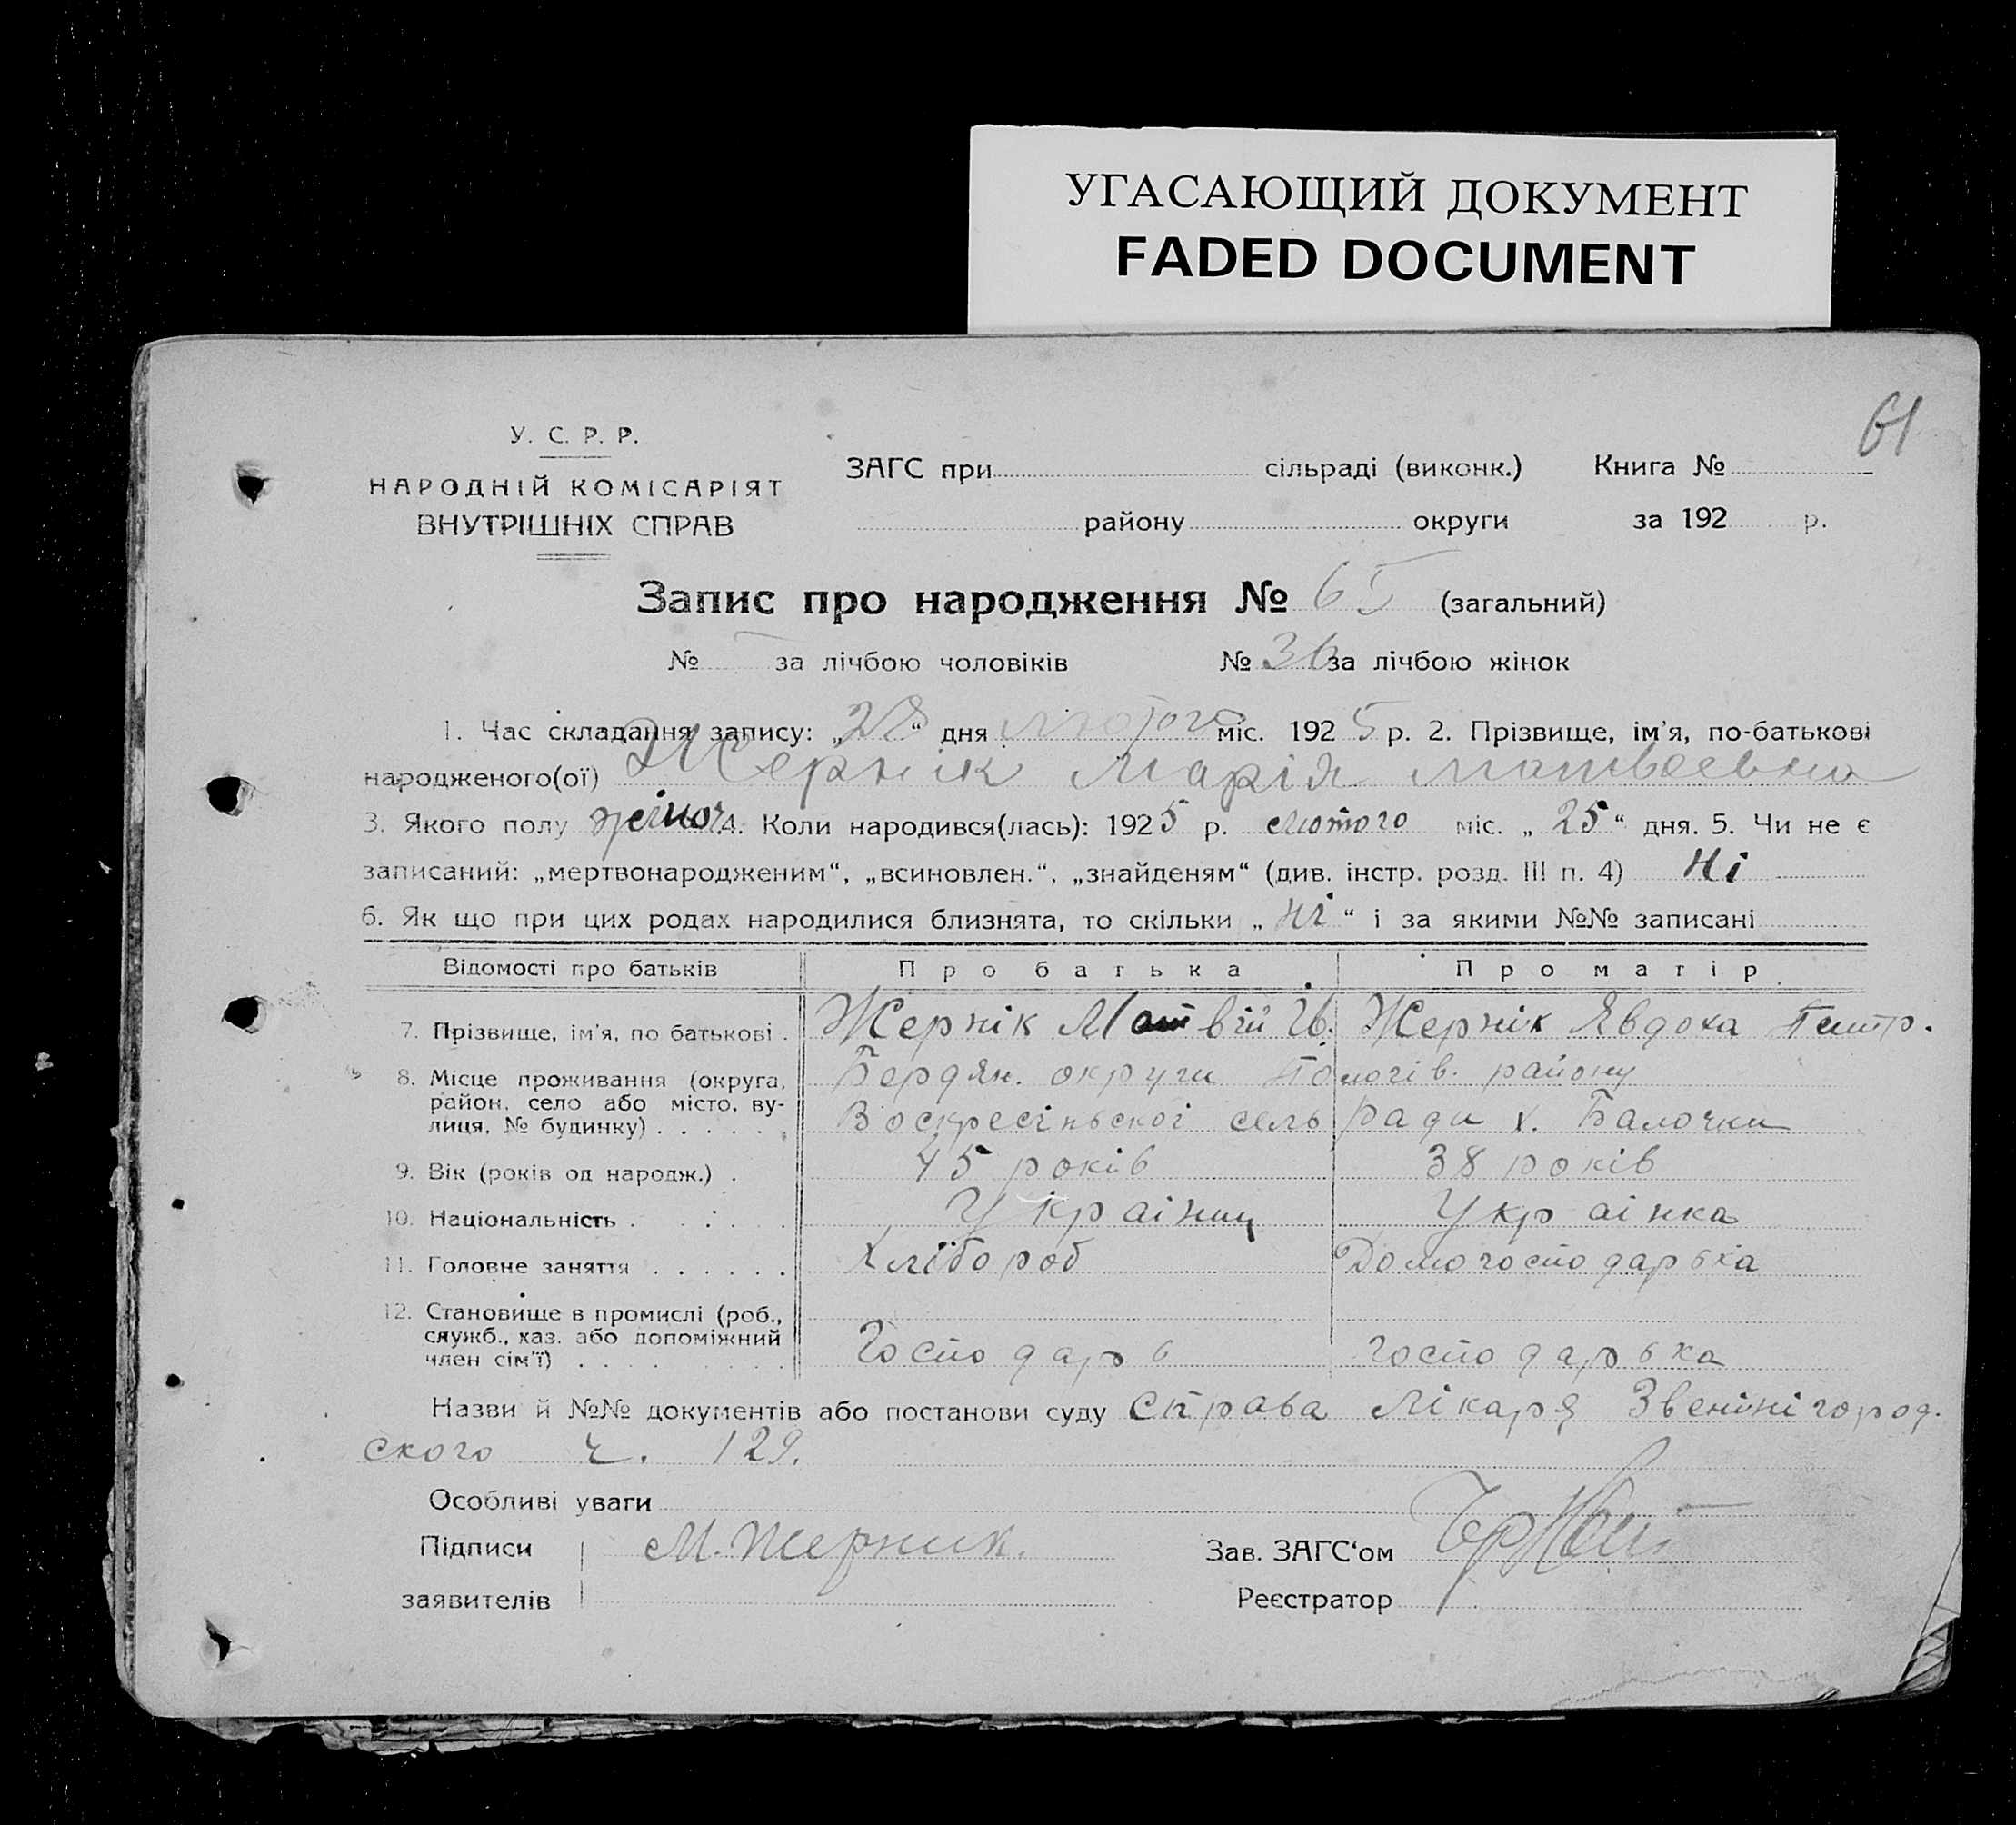 УГАСАЮЩИЙ ДОКУМЕНТ
FADED DOCUMENT
61
У. С. Р. Р.
НАРОДНІЙ КОМІСАРІЯТ
ВНУТРІШНІХ СПРАВ
ЗАГС при сільраді (виконк.) Книга №
району округи за 192 р.
Запис про народження № 65 (загальний)
№ — за лічбою чоловіків № 36 за лічбою жінок
1. Час складання запису: „28“ дня лютого міс. 1925 р. 2. Прізвище, ім'я, по-батькові
народженого(ої) Жернік Марія Матвеевна
3. Якого полу жіноч. 4. Коли народився(лась): 1925 р. лютого міс. „25“ дня. 5. Чи не є
записаний: „мертвонародженим“, „всиновлен.“, „знайденям“ (див. інстр. розд. III п. 4) Ні
6. Як що при цих родах народилися близнята, то скільки „ні“ і за якими №№ записані
Відомості про батьків Про батька Про матір
7. Прізвище, ім'я, по батькові . Жернік Матвій Ив. Жернік Явдоха Петр.
8. Місце проживання (округа, район, село або місто, вулиця, № будинку) . . . . . Бердян. округи Пологів. району
Воскресіньскоі сель ради х. Балочки
9. Вік (років од народж.) . 45 років 38 років
10. Національність . . . . Украінец Украінка
11. Головне заняття . . . . . . Хлїбороб Домогосподарька
12. Становище в промислі (роб., служб., хаз. або допоміжний член сім'ї) . . . . Господарь господарька
Назви й №№ документів або постанови суду Справа лікаря Звенінігород.
ского ч. 129.
Особливі уваги
Підписи М. Жерник. Зав. ЗАГС‘ом
заявителів Реєстратор